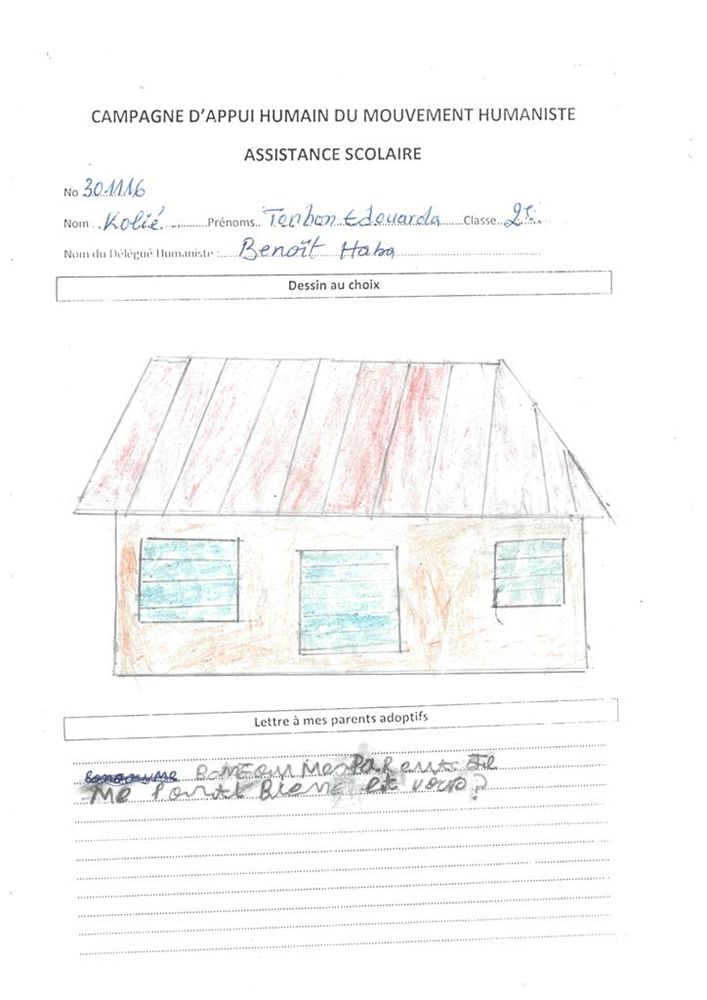 CAMPAGNE D'APPUI HUMAIN DU MOUVEMENT HUMANISTE
ASSISTANCE SCOLAIRE
No 301116
Nom Kolié Prénoms Tonhon Edouarda Classe 2e
Nom du Délégué Humaniste : Benoît Haba
Dessin au choix
Lettre à mes parents adoptifs
BONJOUR Mes PaRents Je
Me Portes Biene et vous?